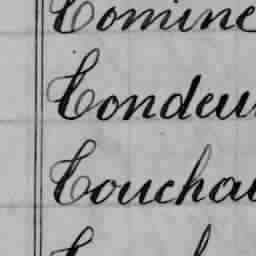 Comine
Condeu
Couchau